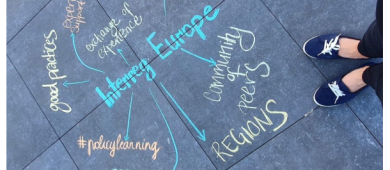 Expert
support
exchange of
experience
good practices
Interreg Europe
Community
of
peers
REGIONS
#policylearning